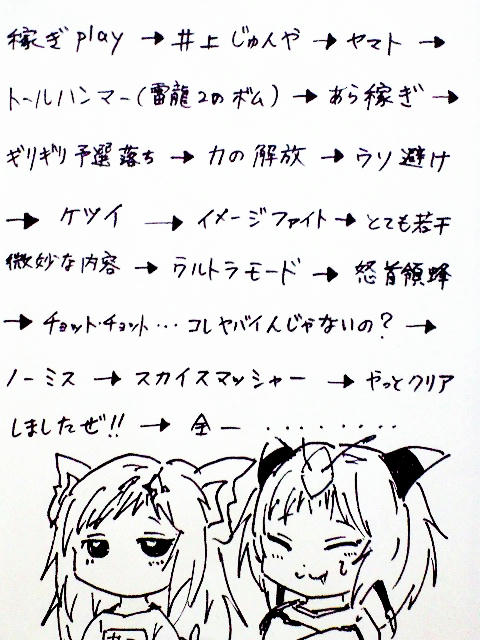 稼ぎplay → 井上じゅんや → ヤマト →
トールハンマー(雷龍2のボム) → あら稼ぎ →
ギリギリ予選落ち → 力の解放 → ウソ避け
→ ケツイ → イメージファイト → とても若干
微妙な内容 → ウルトラモード → 怒首領蜂
→ チョット・チョット… コレヤバイんじゃないの? →
ノーミス → スカイスマッシャー → やっとクリア
しましたぜ!! → 全一 ‥‥‥‥